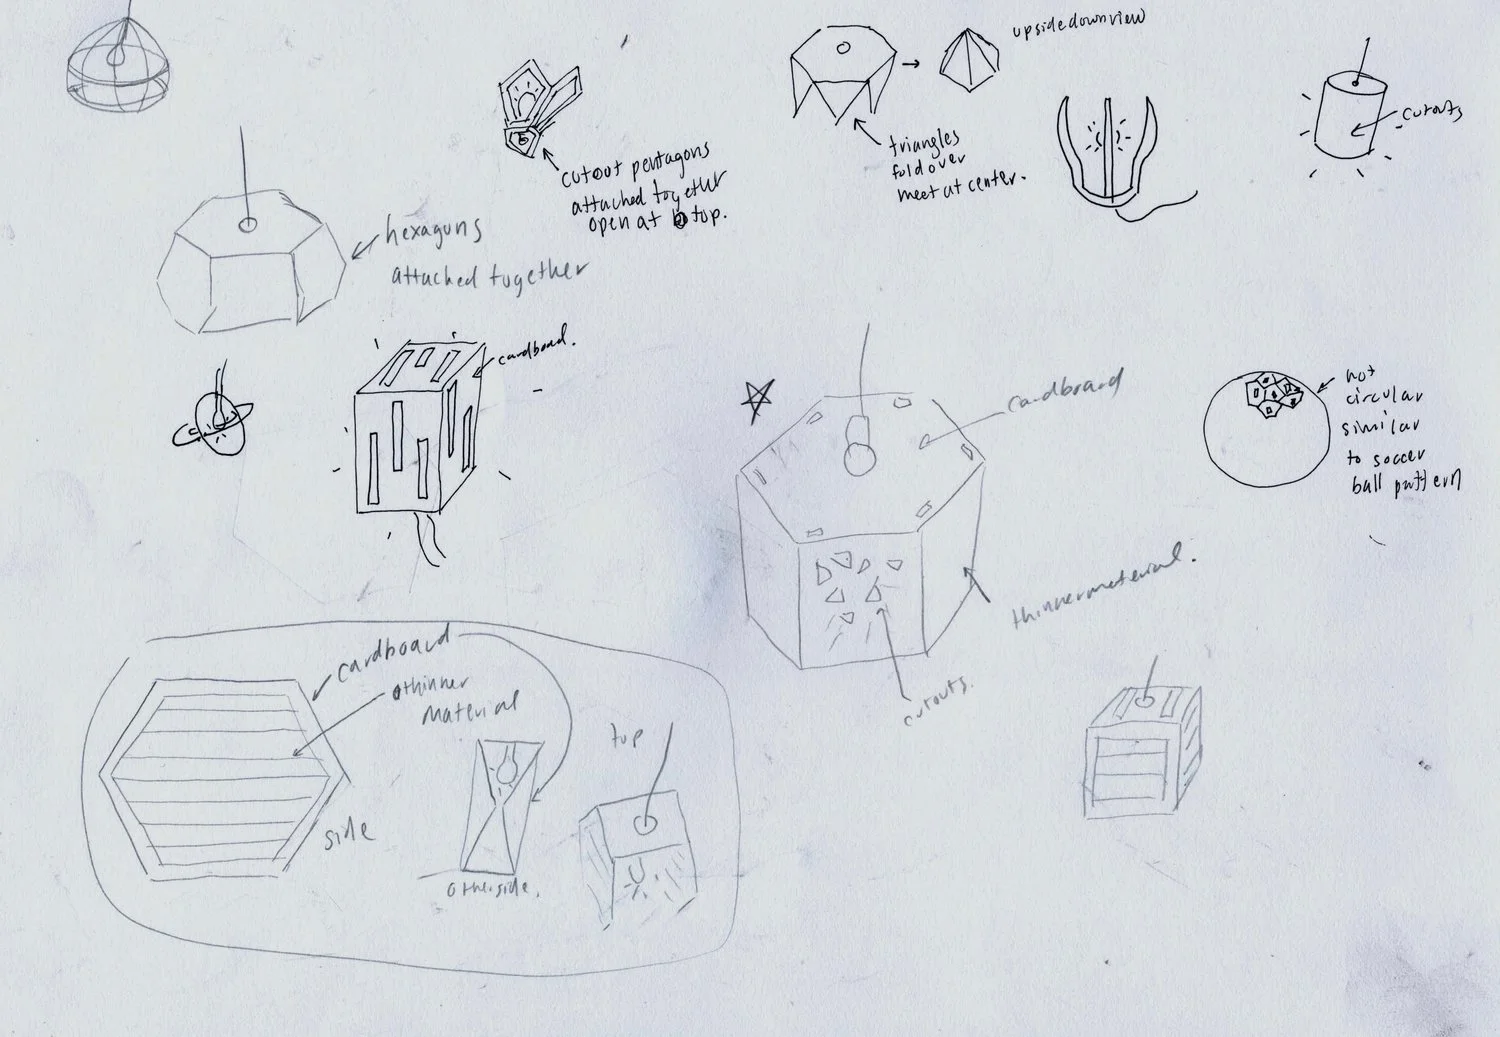 upsidedownview
cutouts
cutout pentagons
attached together
open at top.
triangles
fold over
meet at center.
hexagons
attached together
cardboard.
cardboard
not
circular
similar
to soccer
ball pattern
thinner material.
cutouts.
cardboard
thinner
material
top
side
otherside.